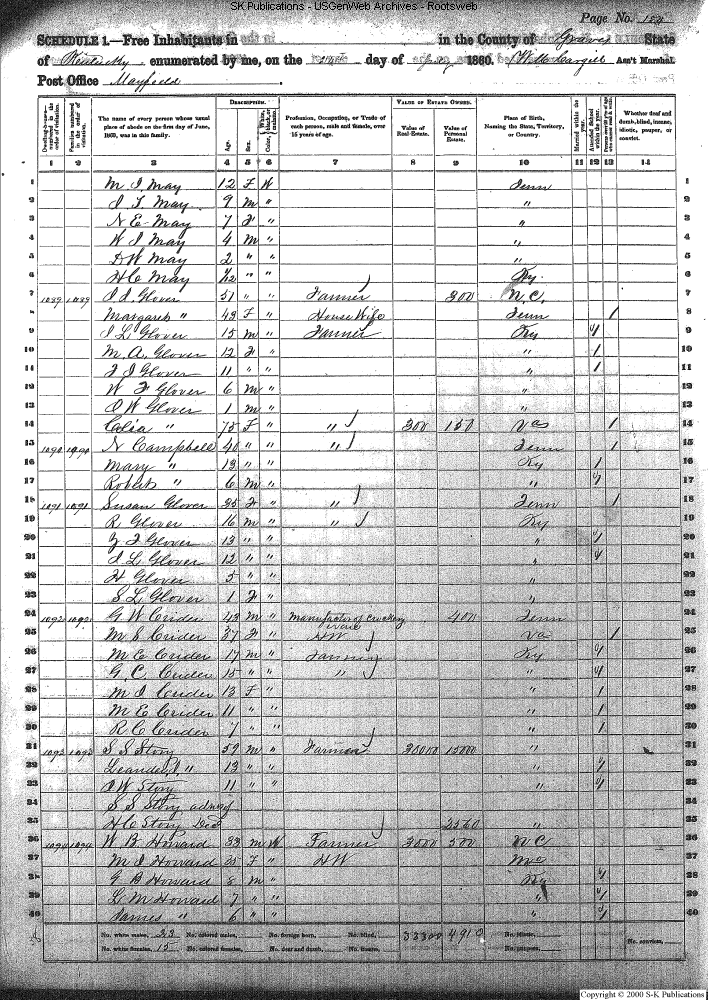 S-K Publications - USGenWeb Archives - Rootsweb
Page No. 154
SCHEDULE 1.—Free Inhabitants in in the County of Graves State
of Kentucky enumerated by me, on the day of 1860. Ass't Marshal.
Post Office Mayfield
Dwelling-houses—numbered in the order of visitation.
Families numbered in the order of visitation.
The name of every person whose usual place of abode on the first day of June, 1860, was in this family.
DESCRIPTION.
Age.
Sex.
Color, White, black, or mulatto.
Profession, Occupation, or Trade of each person, male and female, over 15 years of age.
VALUE OF ESTATE OWNED.
Value of Real Estate.
Value of Personal Estate.
Place of Birth, Naming the State, Territory, or Country.
Married within the year.
Attended School within the year.
Whether deaf and dumb, blind, insane, idiotic, pauper, or convict.
1 2 3 4 5 6 7 8 9 10 11 12 13 14
1 M I May 12 F W Tenn 1
2 I T May 9 m " " 2
3 N E May 7 F " " 3
4 W I May 4 m " " 4
5 D W May 2 " " " 5
6 H C May /12 " " Ky. 6
7 1089 1089 I I Glover 51 " " Farmer 300 N.C. 7
8 Margaret " 43 F " House Wife Tenn / 8
9 I L Glover 15 m " Farmer Ky / 9
10 M. A. Glover 12 F " " / 10
11 F I Glover 11 " " " / 11
12 W F Glover 6 m " " 12
13 O W Glover 1 m " " 13
14 Celia " 75 F " " 300 150 Va / 14
15 1090 1090 N Campbell 40 " " " Tenn / 15
16 Mary " 13 " " Ky / 16
17 Robert " 6 m " " / 17
18 1091 1091 Susan Glover 35 F " " Tenn / 18
19 R Glover 16 m " " Ky 19
20 Z T Glover 13 " " " / 20
21 I L Glover 12 " " " / 21
22 H Glover 5 " " " 22
23 S L Glover 1 F " " 23
24 1092 1092 G W Crider 43 m " Manufactor of Crockery ware 400 Tenn 24
25 M S Crider 37 F " HW Va / 25
26 M C Crider 17 m " Farming Ky / 26
27 G C Crider 15 " " " " / 27
28 M I Crider 13 F " " / 28
29 M E Crider 11 " " " / 29
30 R C Crider 7 " " " / 30
31 1093 1093 S S Story 59 m " Farmer 30000 15000 " 31
32 Leander " 13 " " " / 32
33 O W Story 11 " " " / 33
34 S S Story adm of 34
35 H C Story Decd 2560 " 35
36 1094 1094 W B Howard 33 m W Farmer 3000 500 N C 36
37 M I Howard 25 F " HW 37
38 G B Howard 8 m " Ky / 38
39 L M Howard 7 " " " / 39
40 James " 6 " " " / 40
No. white males, 23 No. colored males, No. foreign born, No. blind, 33300 4910 No. idiotic, No. convicts,
No. white females, 15 No. colored females, No. deaf and dumb, No. insane, No. paupers,
Copyright © 2000 S-K Publications